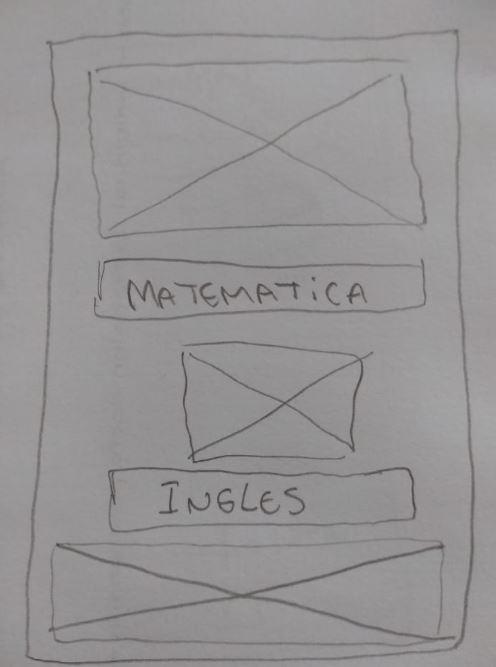 MATEMATiCA
INGLES